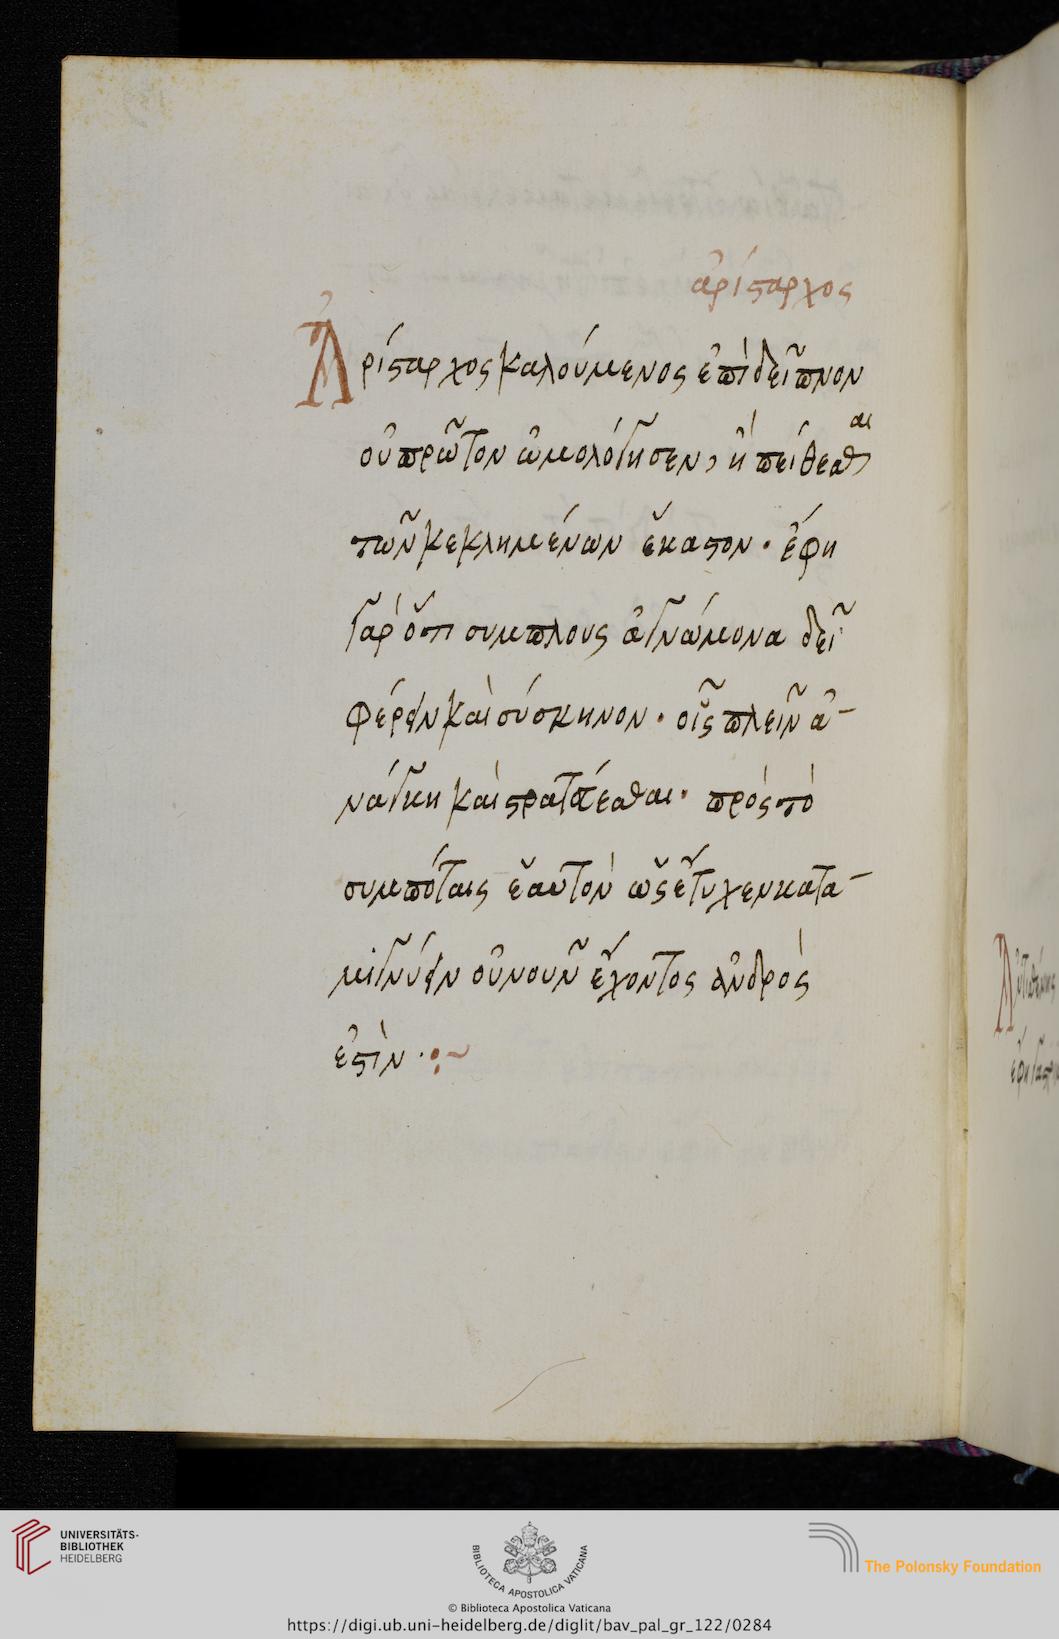 ἀρίσταρχος
Ἀρίσταρχος καλούμενος ἐπὶ δεῖπνον
οὐ πρῶτον ὡμολόγησεν, ἢ πείθεσθαι
τῶν κεκλημένων ἕκαστον · ἔφη
γὰρ ὅτι συμπλους ἀγνώμονα δεῖ
φέρειν καὶ σύσκηνον · οἷς πλεῖν ἀ-
νάγκη καὶ στρατεύεσθαι · πρὸς τὸ
συμπόταις ἑαυτὸν ὡς ἔτυχεν κατα-
μιγνύειν οὐ νοῦν ἔχοντος ἀνδρὸς
ἐστὶν · :~
UNIVERSITÄTS-
BIBLIOTHEK
HEIDELBERG
BIBLIOTECA APOSTOLICA VATICANA
The Polonsky Foundation
© Biblioteca Apostolica Vaticana
https://digi.ub.uni-heidelberg.de/diglit/bav_pal_gr_122/0284